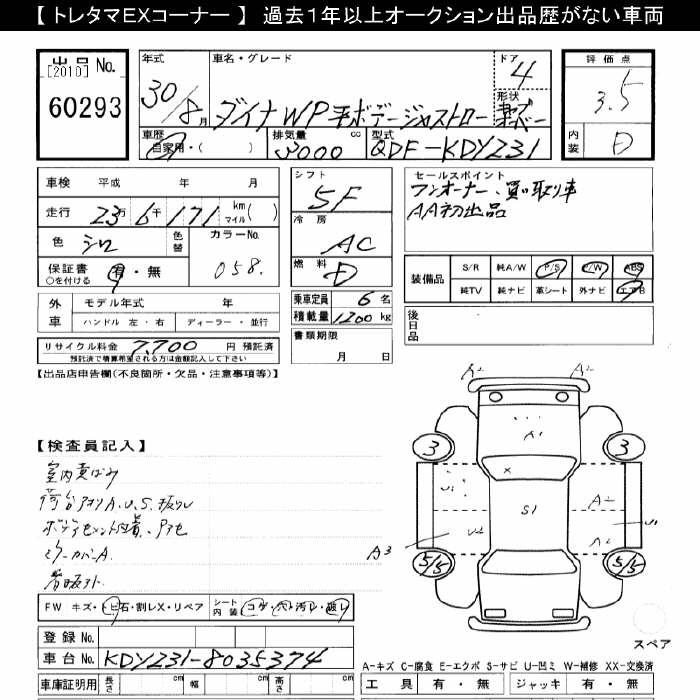 【 トレタマEXコーナー 】 過去1年以上オークション出品歴がない車両
出品 No.
[2010]
60293
年式
30/8月
車名・グレード
ダイナ WP 平ボデージャストロー
ドア
4
形状
評価点
3.5
内装
D
車歴
自家用・(　　)
排気量
3000 cc
型式
QDF-KDY231
車検 平成　年　月
走行 23万 6千 171 km マイル(　)
色 シロ
色替
カラーNo.
058.
保証書 ○を付ける 有・無
外車
モデル年式　年
ハンドル 左・右 ディーラー・並行
リサイクル料金 7,700 円 預託済
預託済で精算希望される方は金額記入して下さい
シフト
5F
冷房
AC
燃料
D
乗車定員 6 名
積載量 1200 kg
書類期限
月　日
セールスポイント
ワンオーナー、買い取り車
AA初出品
装備品
S/R 純A/W P/S P/W ABS
純TV 純ナビ 革シート 外ナビ エアB
後日品
【出品店申告欄(不良箇所・欠品・注意事項等)】
【検査員記入】
室内黄ばみ
荷台アオリA.U.S.
ミラーカバーA.
FW キズ・トビ石・割レX・リペア シート内装 コゲ・穴・汚レ・破レ
登録 No.
車台 No. KDY231-8035374
車庫証明用 長さ cm 幅 cm 高さ cm
A2 A2
A1
3 3
X
U1
S1
A2
U1
U2
A2
A3
5/5 5/5
スペア
A-キズ C-腐食 E-エクボ S-サビ U-凹ミ W-補修 XX-交換済
工具 有・無 ジャッキ 有・無